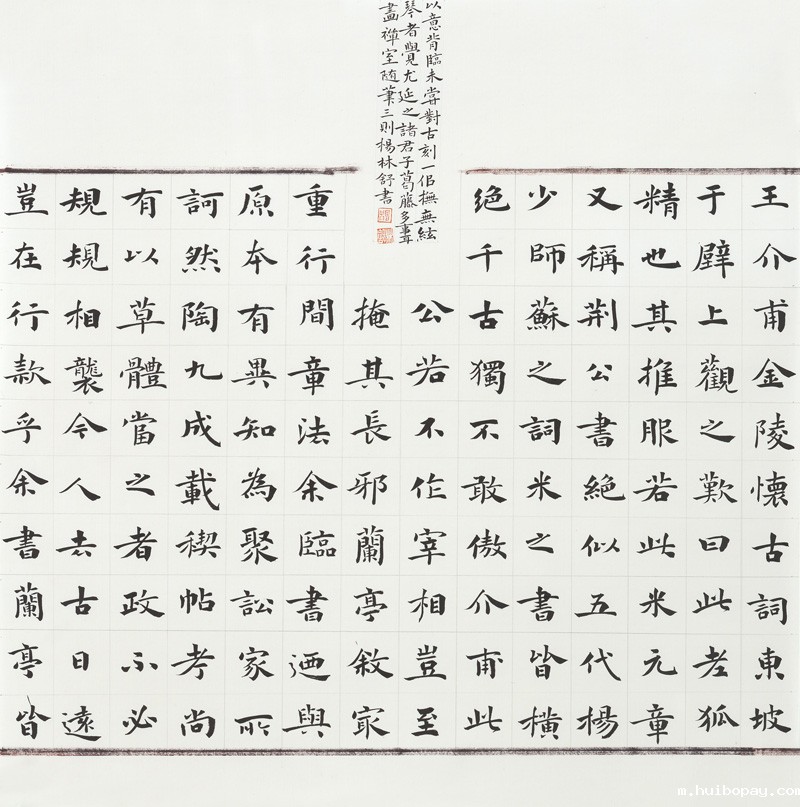 王介甫金陵懷古詞東坡
于壁上觀之歎曰此老狐
精也其推服若此米元章
又稱荆公書絕似五代楊
少師蘇之詞米之書皆橫
絕千古獨不敢傲介甫此
公若不作宰相豈至
掩其長邪蘭亭敘冣
重行間章法余臨書迺與
原本有異知為聚訟家所
訶然陶九成載禊帖考尚
有以草體當之者政不必
規規相襲今人去古日遠
豈在行款乎余書蘭亭皆
以意背臨未嘗對古刻一似撫無絃
琴者覺尤延之諸君子葛藤多事耳
畫禪室随筆三則楊林舒書
m.huibopay.com